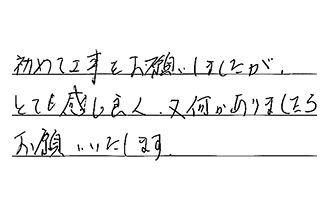 初めて工事をお願いしましたが、
とても感じ良く、又何かありましたら
お願いいたします。